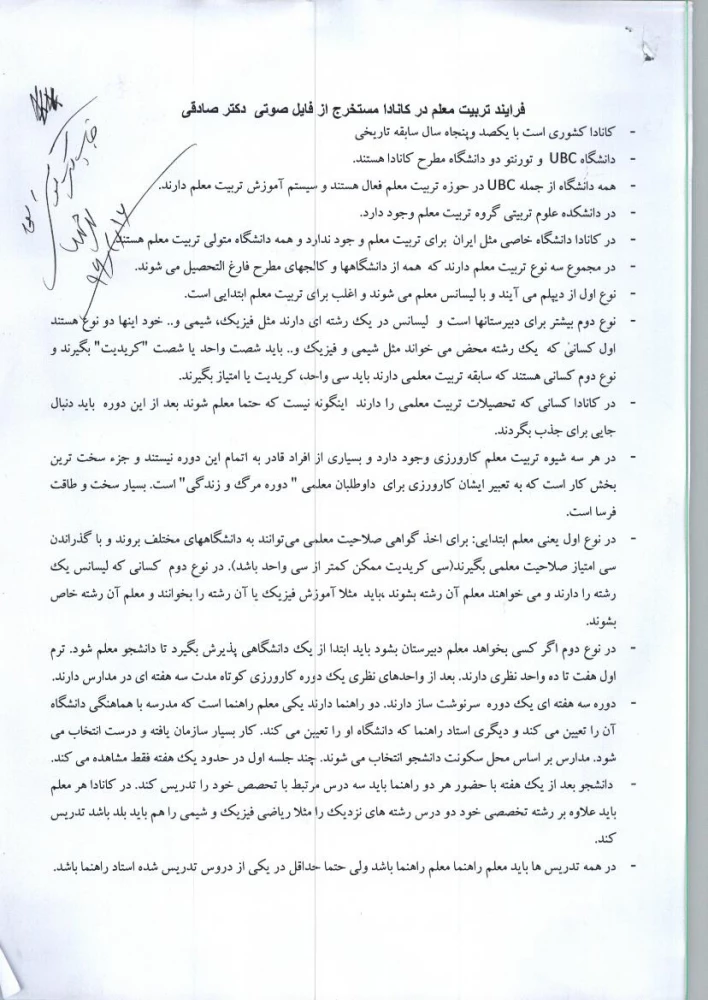 فرایند تربیت معلم در کانادا مستخرج از فایل صوتی دکتر صادقی
- کانادا کشوری است با یکصد وپنجاه سال سابقه تاریخی
- دانشگاه UBC و تورنتو دو دانشگاه مطرح کانادا هستند.
- همه دانشگاه از جمله UBC در حوزه تربیت معلم فعال هستند و سیستم آموزش تربیت معلم دارند.
- در دانشکده علوم تربیتی گروه تربیت معلم وجود دارد.
- در کانادا دانشگاه خاصی مثل ایران برای تربیت معلم و جود ندارد و همه دانشگاه متولی تربیت معلم هستند
- در مجموع سه نوع تربیت معلم دارند که همه از دانشگاهها و کالجهای مطرح فارغ التحصیل می شوند.
- نوع اول از دیپلم می آیند و با لیسانس معلم می شوند و اغلب برای تربیت معلم ابتدایی است.
- نوع دوم بیشتر برای دبیرستانها است و لیسانس در یک رشته ای دارند مثل فیزیک، شیمی و.. خود اینها دو نوع هستند
اول کسانی که یک رشته محض می خواند مثل شیمی و فیزیک و.. باید شصت واحد یا شصت "کریدیت" بگیرند و
نوع دوم کسانی هستند که سابقه تربیت معلمی دارند باید سی واحد، کریدیت یا امتیاز بگیرند.
- در کانادا کسانی که تحصیلات تربیت معلمی را دارند اینگونه نیست که حتما معلم شوند بعد از این دوره باید دنبال
جایی برای جذب بگردند.
- در هر سه شیوه تربیت معلم کارورزی وجود دارد و بسیاری از افراد قادر به اتمام این دوره نیستند و جزء سخت ترین
بخش کار است که به تعبیر ایشان کارورزی برای داوطلبان معلمی " دوره مرگ و زندگی" است. بسیار سخت و طاقت
فرسا است.
- در نوع اول یعنی معلم ابتدایی: برای اخذ گواهی صلاحیت معلمی می‌توانند به دانشگاههای مختلف بروند و با گذراندن
سی امتیاز صلاحیت معلمی بگیرند(سی کریدیت ممکن کمتر از سی واحد باشد). در نوع دوم کسانی که لیسانس یک
رشته را دارند و می خواهند معلم آن رشته بشوند ،باید مثلا آموزش فیزیک یا آن رشته را بخوانند و معلم آن رشته خاص
بشوند.
- در نوع دوم اگر کسی بخواهد معلم دبیرستان بشود باید ابتدا از یک دانشگاهی پذیرش بگیرد تا دانشجو معلم شود. ترم
اول هفت تا ده واحد نظری دارند. بعد از واحدهای نظری یک دوره کارورزی کوتاه مدت سه هفته ای در مدارس دارند.
- دوره سه هفته ای یک دوره سرنوشت ساز دارند. دو راهنما دارند یکی معلم راهنما است که مدرسه با هماهنگی دانشگاه
آن را تعیین می کند و دیگری استاد راهنما که دانشگاه او را تعیین می کند. کار بسیار سازمان یافته و درست انتخاب می
شود. مدارس بر اساس محل سکونت دانشجو انتخاب می شوند. چند جلسه اول در حدود یک هفته فقط مشاهده می کند.
- دانشجو بعد از یک هفته با حضور هر دو راهنما باید سه درس مرتبط با تحصص خود را تدریس کند. در کانادا هر معلم
باید علاوه بر رشته تخصصی خود دو درس رشته های نزدیک را مثلا ریاضی فیزیک و شیمی را هم باید بلد باشد تدریس
کند.
- در همه تدریس ها باید معلم راهنما معلم راهنما باشد ولی حتما حداقل در یکی از دروس تدریس شده استاد راهنما باشد.